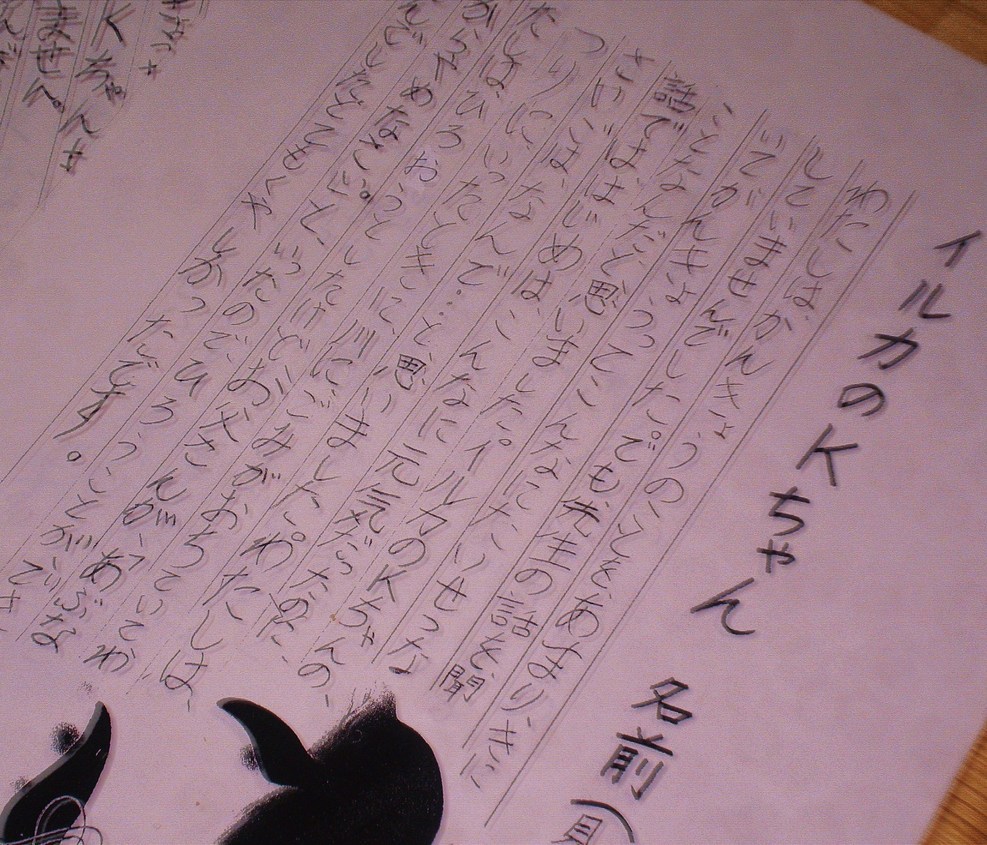 イルカのKちゃん 名前(
わたしは、かんきょうのことをあまりきに
していませんでした。でも先生の話を聞
いてかんきょうってこんなにたいせつな
ことなんだと思いました。イルカのKちゃんの、
話でははじめは、こんなに元気だったのに、
さいごは、なんで…と思いました。わたしは、
つりにいったときに、川にごみがおちていてわ
たしは、ひろおうとしたけどお父さんが、「あぶな
からやめなさい。」と、いったのでひろうことができ
んでしたとてもくやしかったです。
ません。